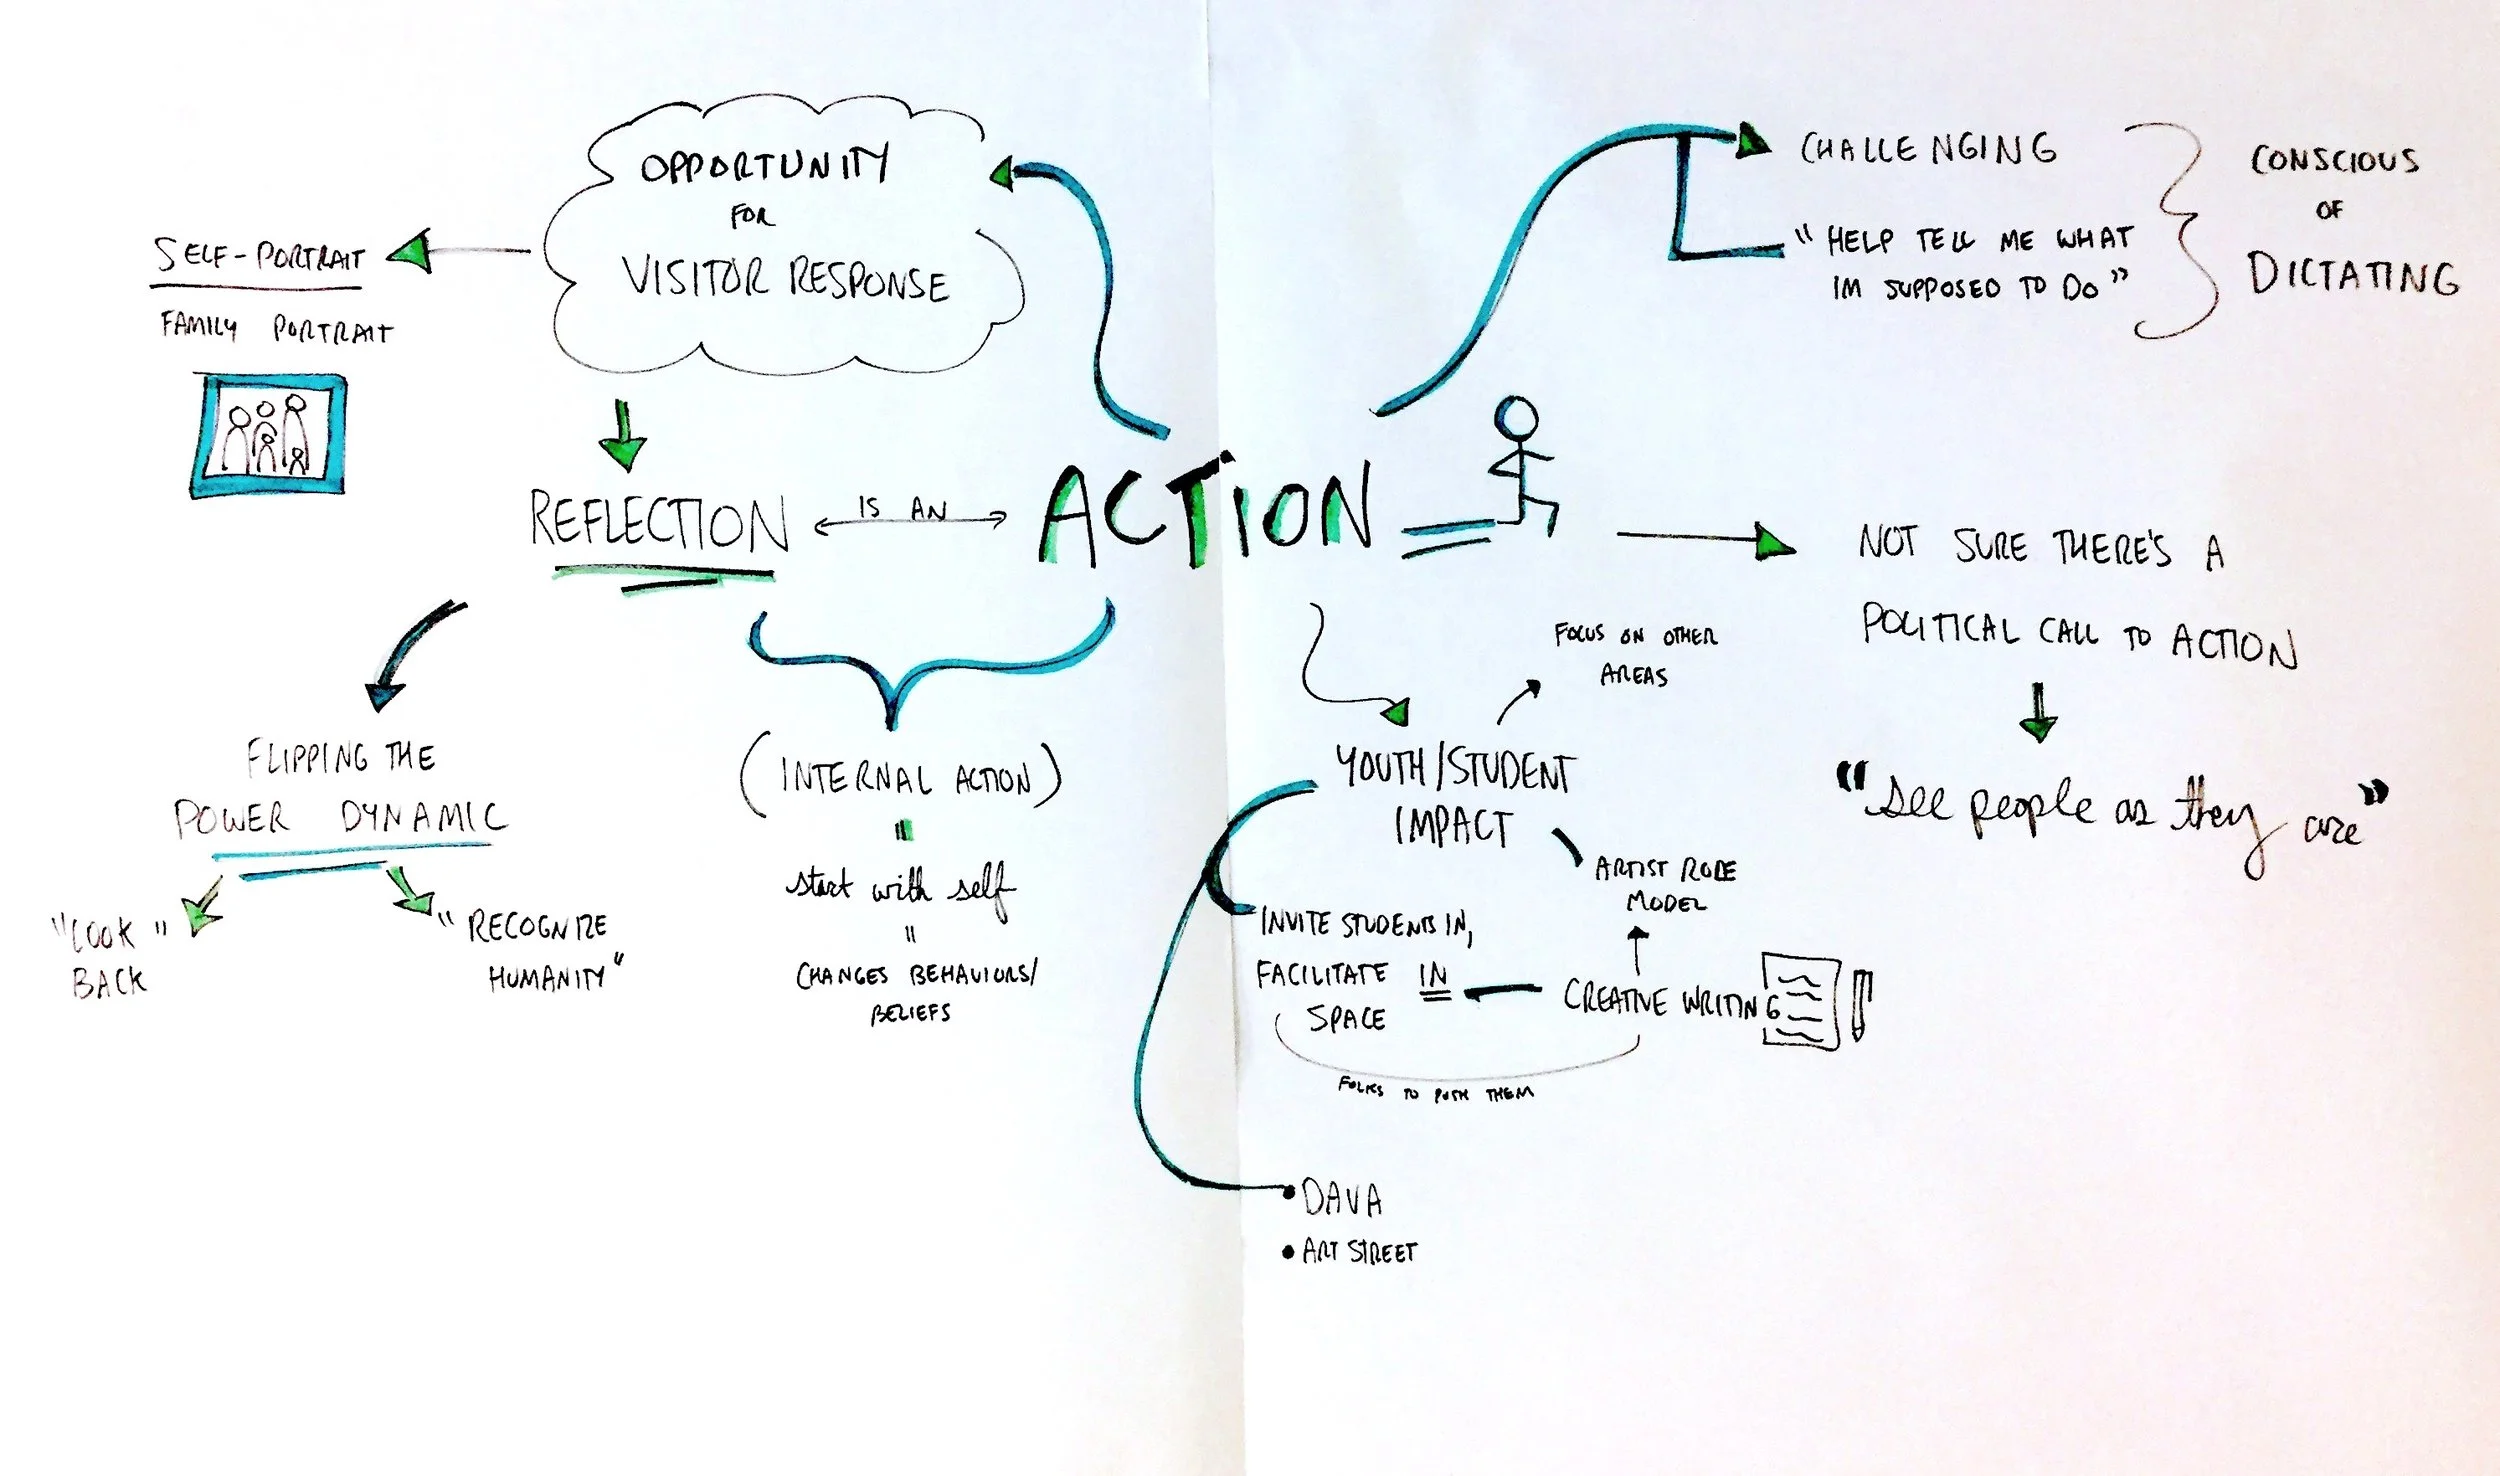 OPPORTUNITY
FOR
VISITOR RESPONSE
SELF-PORTRAIT
FAMILY PORTRAIT
CHALLENGING
"HELP TELL ME WHAT
IM SUPPOSED TO DO"
CONSCIOUS
OF
DICTATING
REFLECTION
IS AN
ACTION
NOT SURE THERE'S A
POLITICAL CALL TO ACTION
"see people as they are"
FLIPPING THE
POWER DYNAMIC
"LOOK"
BACK
"RECOGNIZE
HUMANITY"
(INTERNAL ACTION)
start with self
CHANGES BEHAVIORS/
BELIEFS
FOCUS ON OTHER
AREAS
YOUTH/STUDENT
IMPACT
ARTIST ROLE
MODEL
INVITE STUDENTS IN,
FACILITATE IN
SPACE
CREATIVE WRITING
FOLKS TO PUSH THEM
• DAVA
• ART STREET